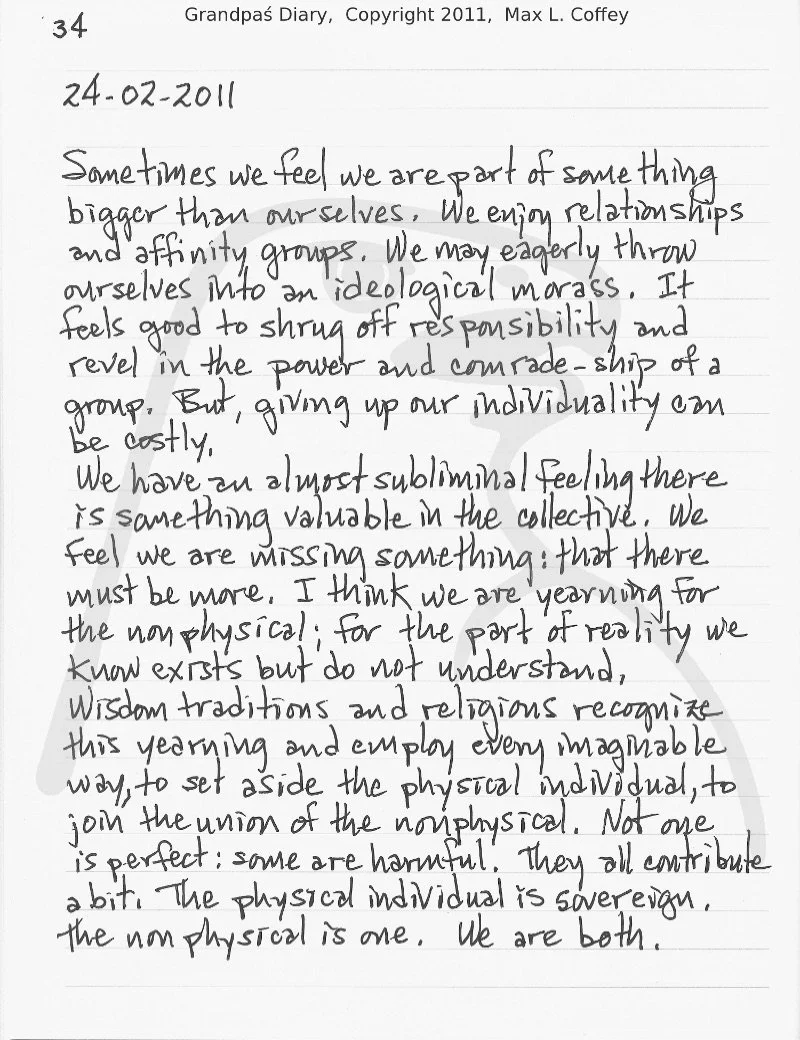 Grandpaś Diary, Copyright 2011, Max L. Coffey
34
24-02-2011
Sometimes we feel we are part of something
bigger than ourselves. We enjoy relationships
and affinity groups. We may eagerly throw
ourselves into an ideological morass. It
feels good to shrug off responsibility and
revel in the power and comrade-ship of a
group. But, giving up our individuality can
be costly.
We have an almost subliminal feeling there
is something valuable in the collective. We
feel we are missing something: that there
must be more. I think we are yearning for
the nonphysical; for the part of reality we
know exists but do not understand,
Wisdom traditions and religions recognize
this yearning and employ every imaginable
way, to set aside the physical individual, to
join the union of the nonphysical. Not one
is perfect: some are harmful. They all contribute
a bit. The physical individual is sovereign.
The nonphysical is one. We are both.